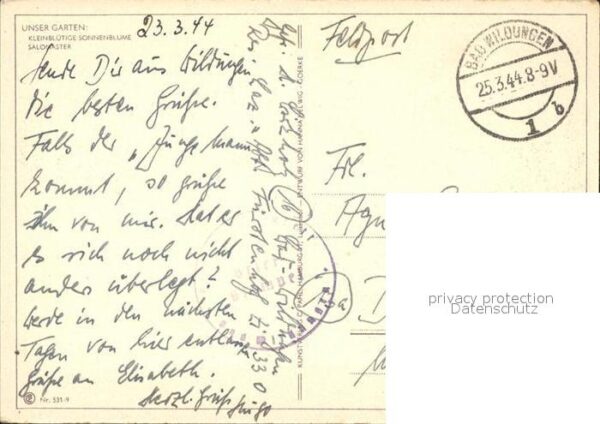 UNSER GARTEN:
KLEINBLÜTIGE SONNENBLUME
SALOMASTER
23.3.44
Sende Dir aus Wildungen
die besten Grüße.
Falls der „Junge Mann
kommt, so grüße
ihn von mir. Hat er
es sich noch nicht
anders überlegt?
Werde in den nächsten
Tagen von hier entlassen
Grüße an Elisabeth.
Herzl. Gruß
Hugo
Nr. 531-9
Res. Laz. Fürstenhof Z. 330
ENTWURF VON HANNA HELWIG-GOERKE
Feldpost
BAD WILDUNGEN
25.3.44.8-9V
1 b
Frl.
privacy protection
Datenschutz